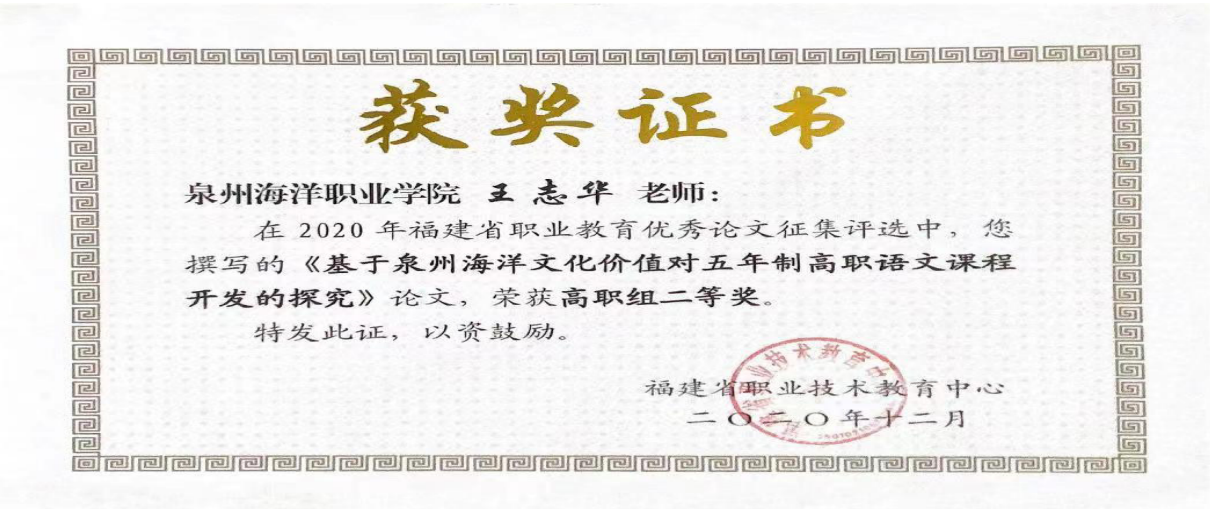 获奖证书
泉州海洋职业学院 王志华 老师：
在 2020 年福建省职业教育优秀论文征集评选中，您
撰写的《基于泉州海洋文化价值对五年制高职语文课程
开发的探究》论文，荣获高职组二等奖。
特发此证，以资鼓励。
福建省职业技术教育中心
二〇二〇年十二月